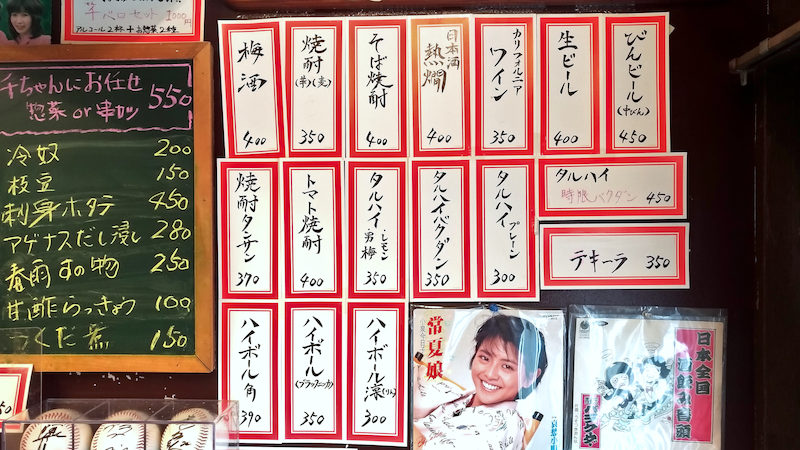 ベロセット 1000円
アルコール2杯+お惣菜2種
千ちゃんにお任せ
惣菜or串カツ 550
冷奴 200
枝豆 150
刺身ホタテ 450
アゲナスだし浸し 280
春雨すの物 250
甘酢らっきょう 100
つくだ煮 150
梅酒 400
焼酎(芋)(麦) 350
そば焼酎 400
日本酒
熱燗 400
カリフォルニア
ワイン 350
生ビール 400
びんビール(中びん) 450
焼酎タンサン 370
トマト焼酎 400
タルハイ・レモン・男梅 350
タルハイバクダン 350
タルハイプレーン 300
タルハイ
時限バクダン 450
テキーラ 350
ハイボール角 390
ハイボール(ブラックニッカ) 350
ハイボール凛(りん) 300
50
常夏娘
小泉今日子
日本全国
酒飲み音頭